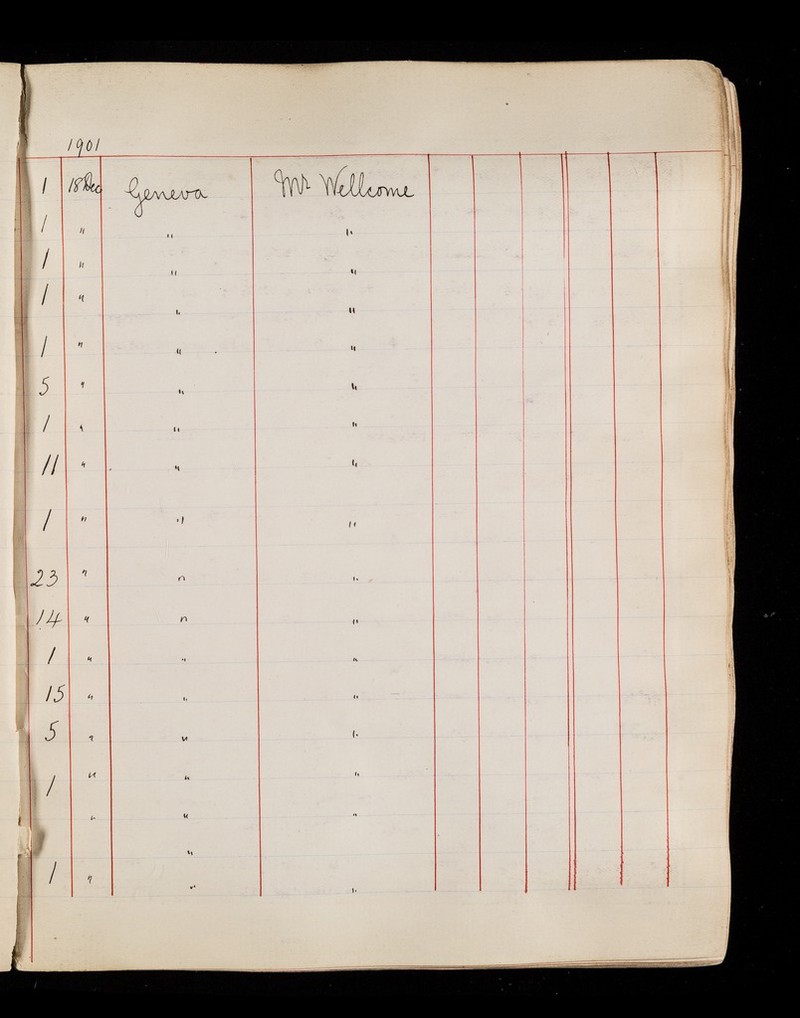 1901
1 18 Dec Geneva Mr Wellcome
1 " " "
1 " " "
1 " " "
1 " " "
5 " " "
1 " " "
11 " " "
1 " " "
23 " " "
14 " " "
1 " " "
15 " " "
5 " " "
1 " " "
" " "
"
1 " " "